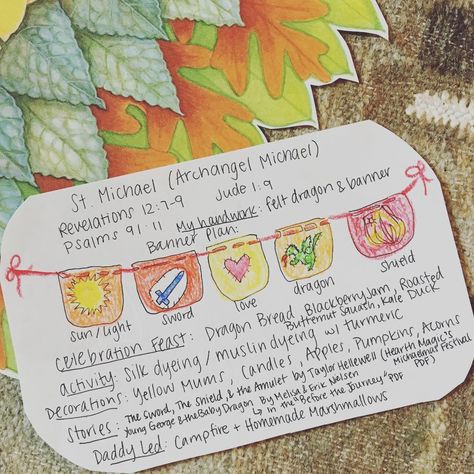 St. Michael (Archangel Michael)
Revelations 12:7-9 Jude 1:9
Psalms 91:11 My handwork: felt dragon & banner
Banner Plan:
sun/light sword love dragon shield
Celebration Feast: Dragon Bread, Blackberry Jam, Roasted
Butternut Squash, Kale Duck
Activity: Silk dyeing/muslin dyeing w/ turmeric
Decorations: Yellow Mums, Candles, Apples, Pumpkins, Acorns
Stories: The Sword, The Shield, & the Amulet by Taylor Hellewell (Hearth Magic's Michaelmas Festival PDF)
Young George & the Baby Dragon By Melisa & Eric Nielsen
↳ in the "Before the Journey" PDF
Daddy Led: Campfire + Homemade Marshmallows